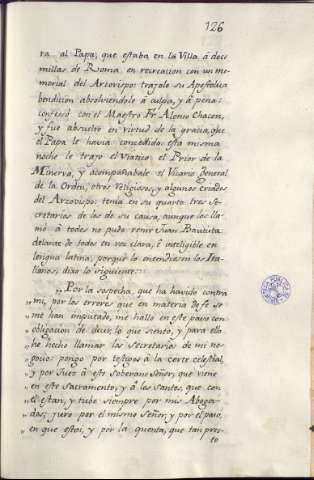 126
ra al Papa; que estaba en la Villa á doce
millas de Roma en recreacion con un me-
morial del Arzovispo: trajole su Apostolica
bendicion absolviendole á culpa, y á pena:
confesó con el Maestro Fr. Alonso Chacon,
y fue absuelto en virtud de la gracia, que
el Papa le havia concedido: esta misma
noche le trajo el Viatico el Prior de la
Minerva, y acompañabale el Vicario general
de la Orden, otros religiosos, y algunos criados
del Arzovispo: tenia en su quarto tres Se-
cretarios de los de su causa, aunque los lla-
mó á todos no pudo venir Juan Bautista
delante de todos en voz clara, é inteligible en
lengua latina, porque lo entendiesen los Ita-
lianos, dixo lo siguiente:
„ Por la sospecha, que ha havido contra
„ mi, por los errores que en materia de fe se
„ me han imputado, me hallo en este paso con
„ obligacion de decir lo que siento, y para ello
„ he hecho llamar los Secretarios de mi ne-
„ gocio: pongo por testigos á la corte celestial,
„ y por Juez á este Soberano Señor, que viene
„ en este Sacramento, y á los santos, que con
„ el estan, y tube siempre por mis Aboga-
„ dos; juro por el mismo Señor, y por el paso,
„ en que estoi, y por la quenta, que tan pres-
to